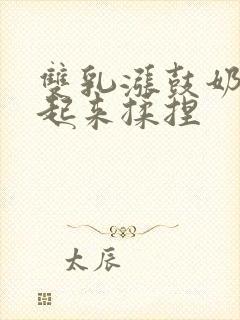 雙乳漲鼓奶
起来揉捏
太辰